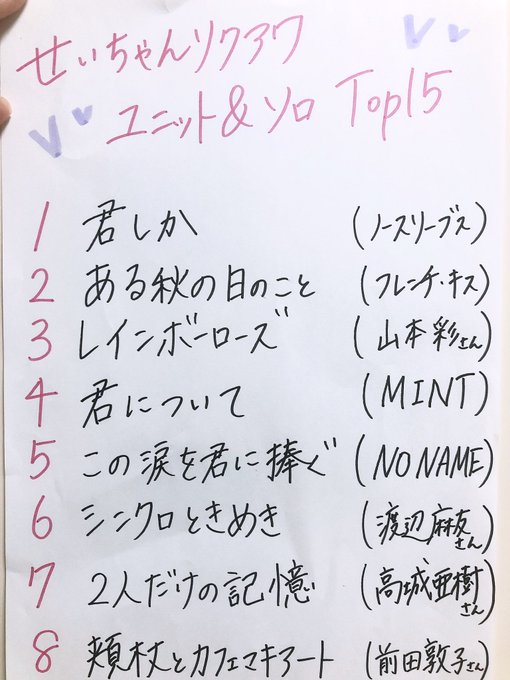 せいちゃんリクアワ
ユニット&ソロ Top15
1 君しか (ノースリーブス)
2 ある秋の日のこと (フレンチ・キス)
3 レインボーローズ (山本彩さん)
4 君について (MINT)
5 この涙を君に捧ぐ (NO NAME)
6 シンクロときめき (渡辺麻友さん)
7 2人だけの記憶 (高城亜樹さん)
8 頬杖とカフェマキアート (前田敦子さん)